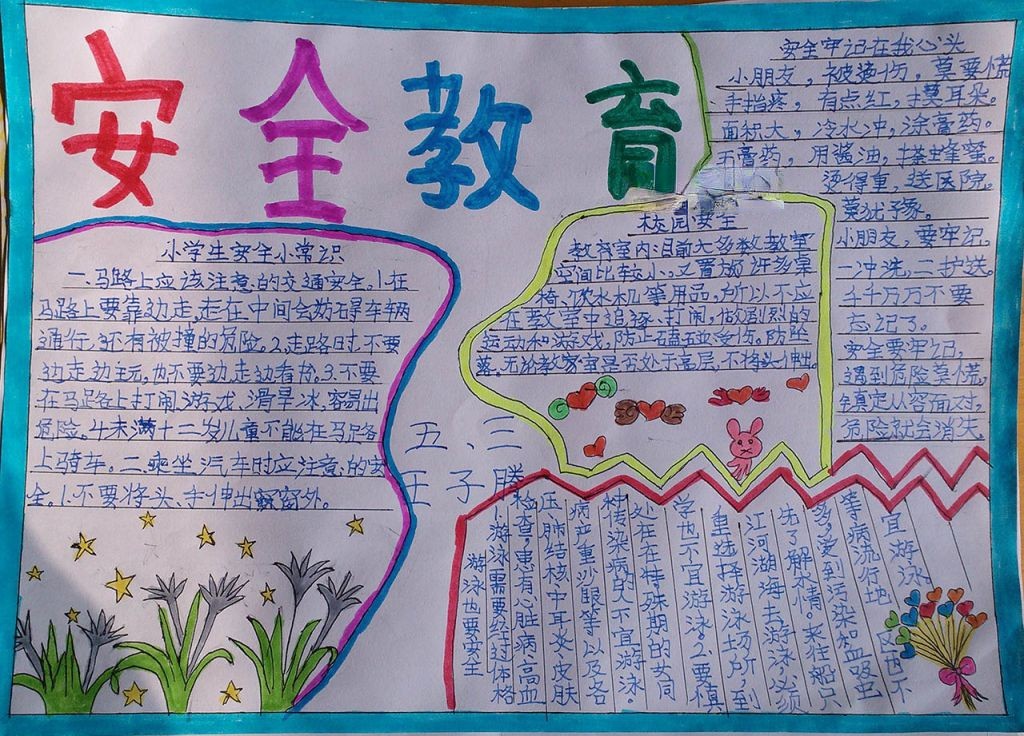 安全教育
小学生安全小常识
一、马路上应该注意的交通安全。1.在
马路上要靠边走,走在中间会妨碍车辆
通行,还有被撞的危险。2.走路时不要
边走边玩,也不要边走边看书。3.不要
在马路上打闹、游戏、滑旱冰,容易出
危险。4.未满十二岁儿童不能在马路
上骑车。二、乘坐汽车时应注意的安
全。1.不要将头、手伸出窗外。
五、三
王子腾
校园安全
教室内:目前大多数教室
空间比较小,又置放许多桌
椅、饮水机等用品,所以不应
在教室中追逐、打闹,做剧烈的
运动和游戏,防止磕碰受伤,防坠
落,无论教室是否处于高层,不将头伸出
安全牢记在我心头
小朋友,被烫伤,莫要慌
手指疼,有点红,摸耳朵。
面积大,冷水冲,涂膏药。
无膏药,用酱油,搽蜂蜜。
烫得重,送医院。
莫犹豫。
小朋友,要牢记,
一冲洗,二护送。
千千万万不要
忘记了。
安全要牢记,
遇到危险莫慌,
镇定从容面对,
危险就会消失。
宜游泳
等病流行地区内不
多,受到污染和血吸虫
先了解水情。来往船只
江河湖海去游泳必须
重选择游泳场所,到
学也不宜游泳。2.要慎
处在在特殊期的女同
种传染病的人不宜游泳
病、严重沙眼等以及各
压、肺结核、中耳炎、皮肤
检查,患有心脏病、高血
1.游泳需要经过体格
游泳也要安全